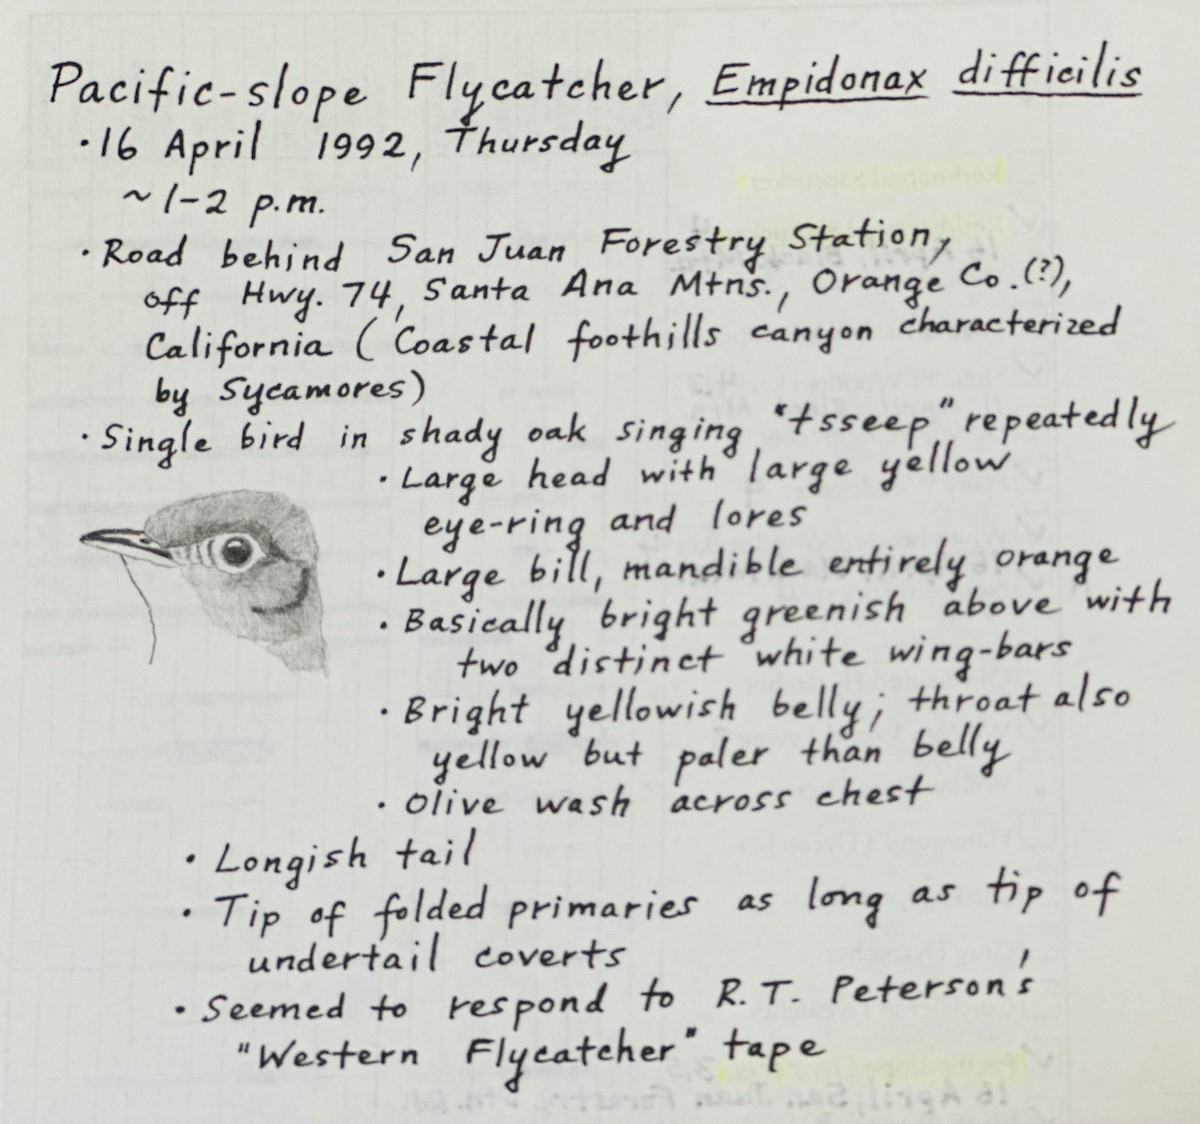 Pacific-slope Flycatcher, Empidonax difficilis
·16 April 1992, Thursday
~1-2 p.m.
·Road behind San Juan Forestry Station,
off Hwy. 74, Santa Ana Mtns., Orange Co.(?),
California (Coastal foothills canyon characterized
by Sycamores)
·Single bird in shady oak singing "tsseep" repeatedly
·Large head with large yellow
eye-ring and lores
·Large bill, mandible entirely orange
·Basically bright greenish above with
two distinct white wing-bars
·Bright yellowish belly; throat also
yellow but paler than belly
·Olive wash across chest
·Longish tail
·Tip of folded primaries as long as tip of
undertail coverts
·Seemed to respond to R. T. Peterson's
"Western Flycatcher" tape